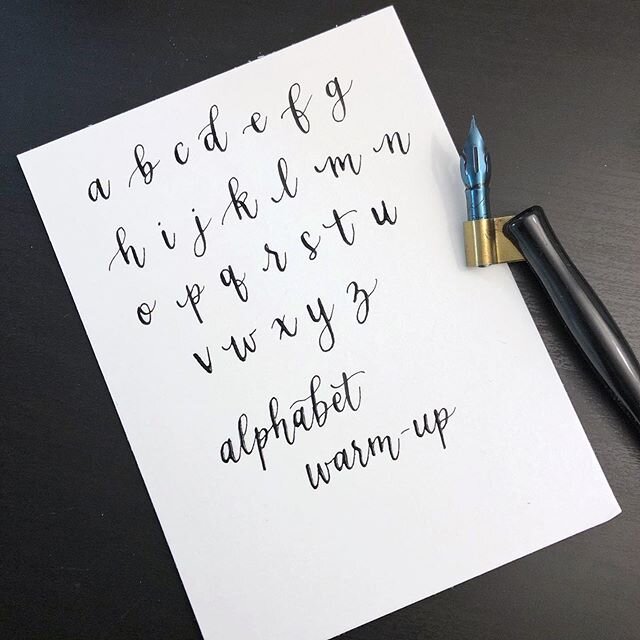 a b c d e f g
h i j k l m n
o p q r s t u
v w x y z
alphabet
warm-up